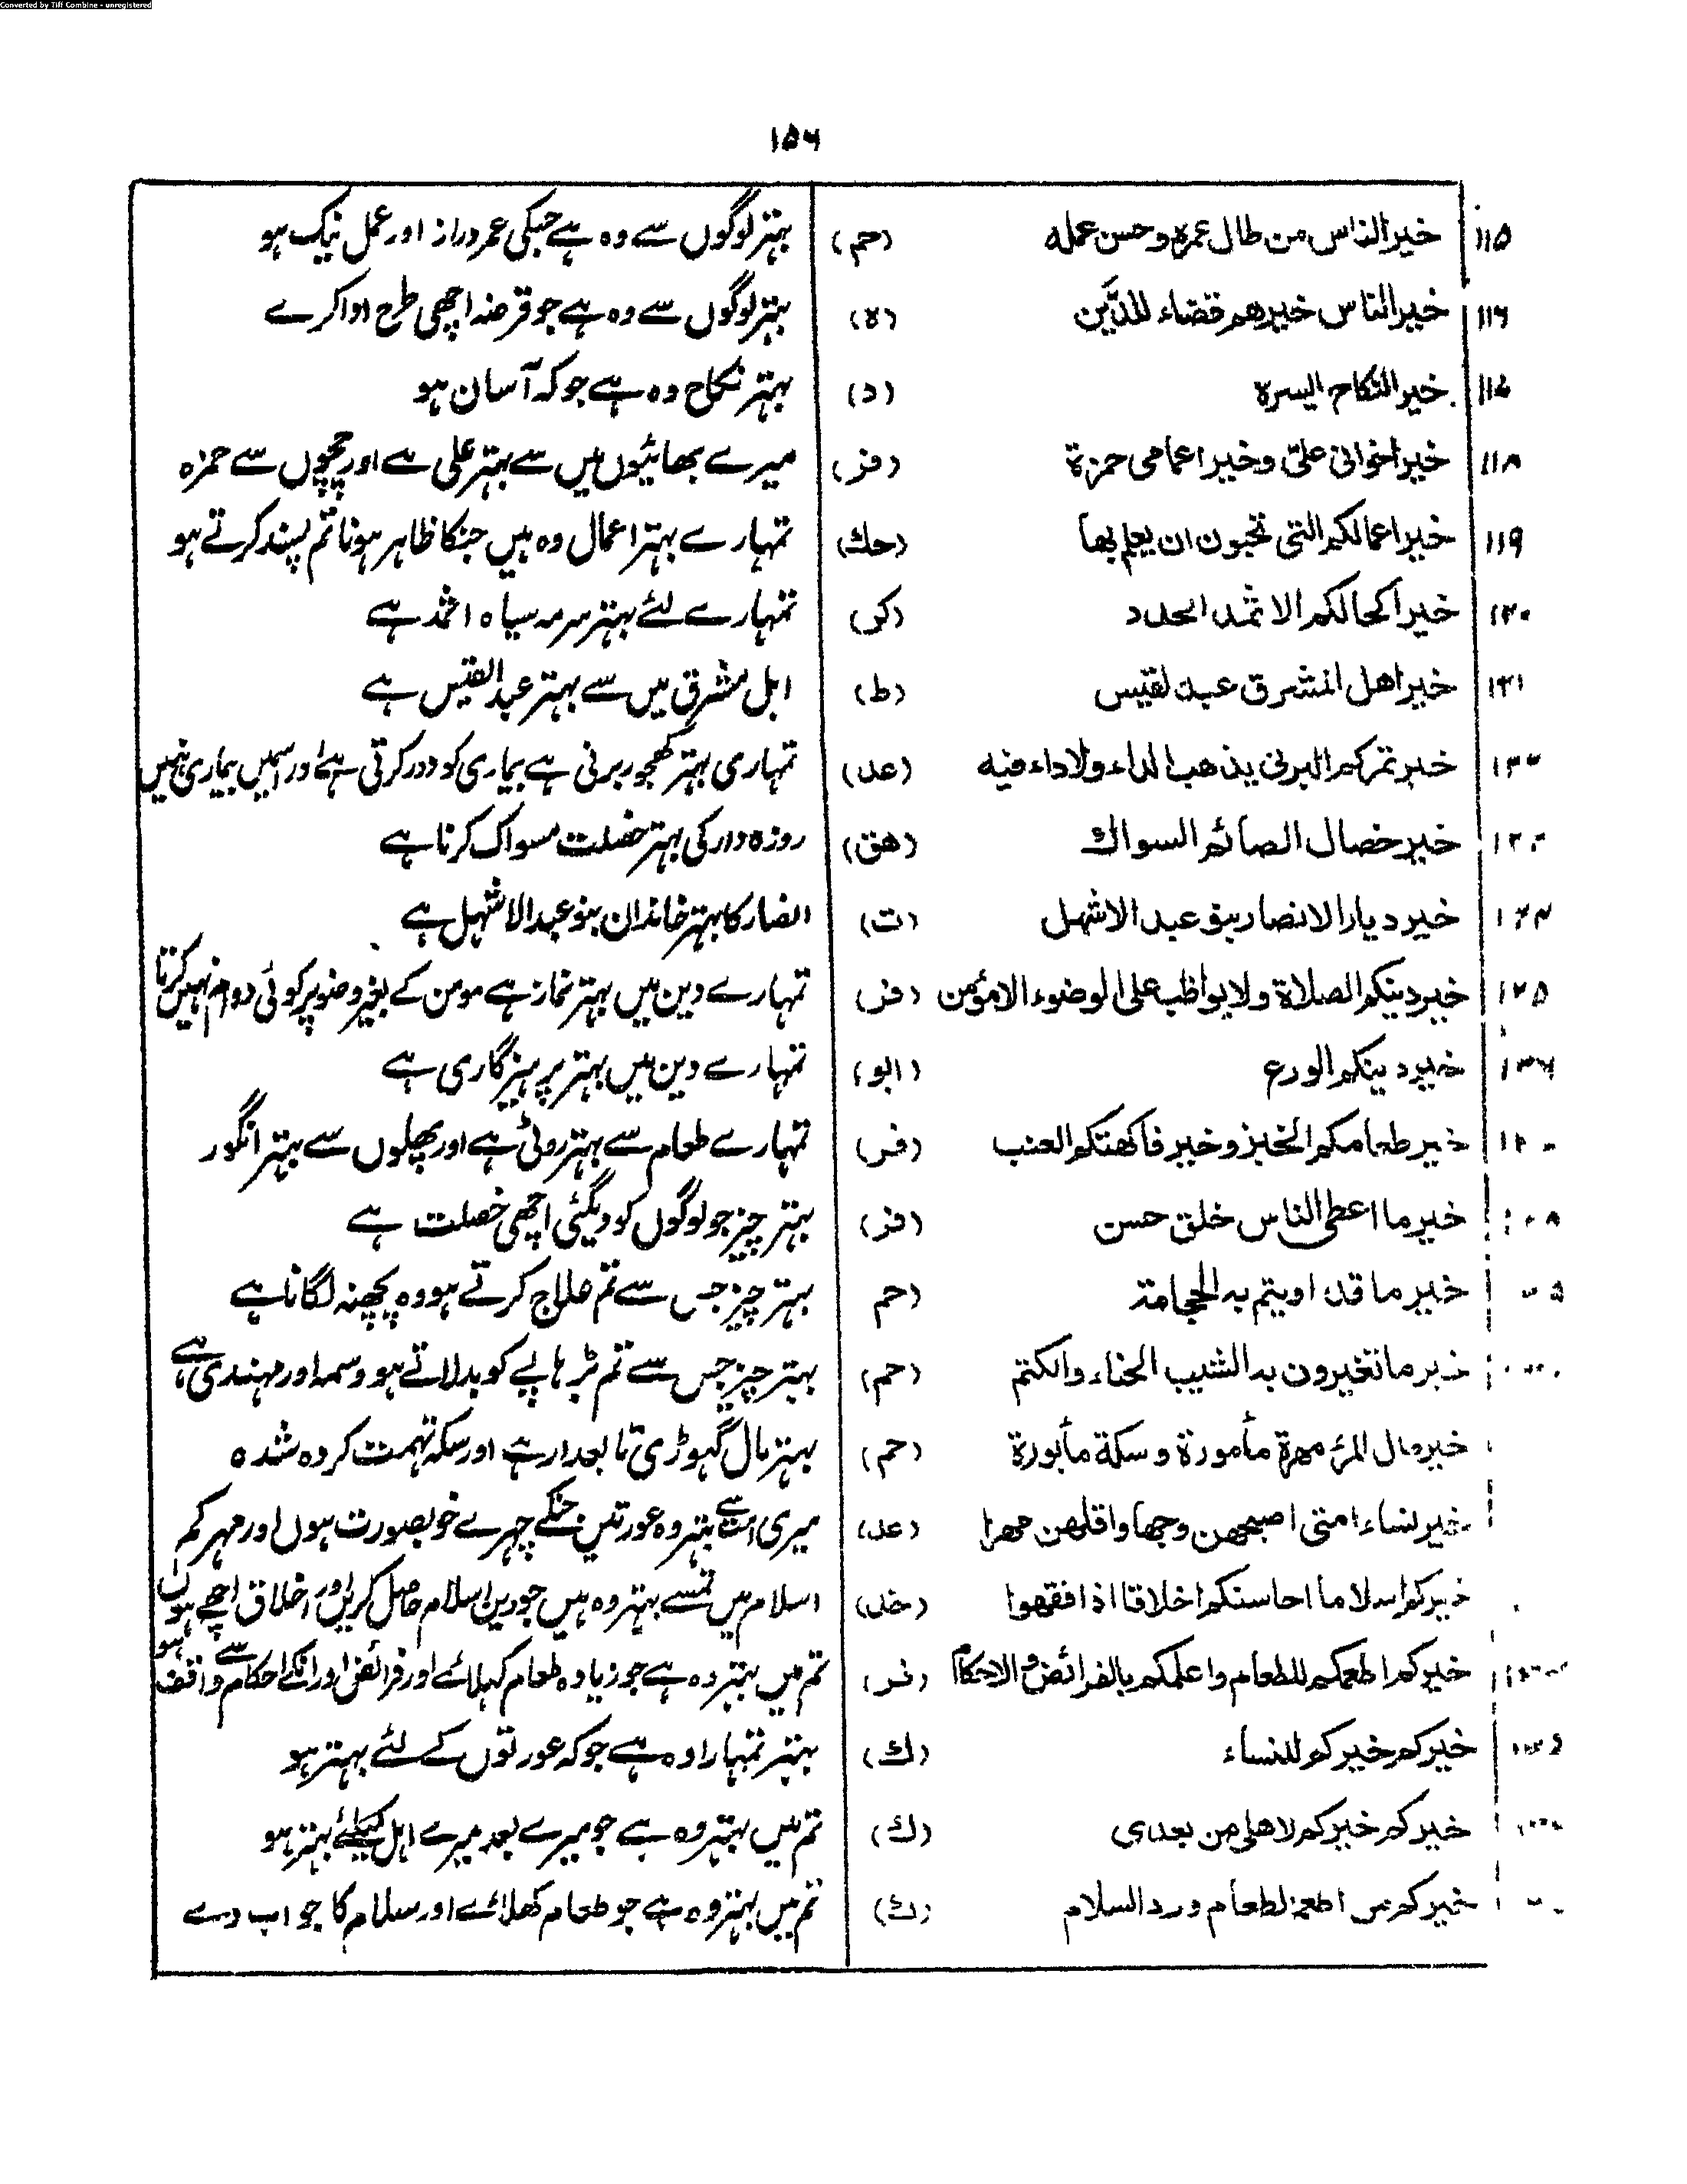 Converted by Tiff Combine - unregistered
۱۵۶
۱۱۵ خیر الناس من طال عمرہ وحسن عملہ (حم) بہتر لوگوں سے وہ ہے جسکی عمر دراز اور عمل نیک ہو
۱۱۶ خیر الناس خیرهم قضاء للدَّین (ہ) بہتر لوگوں سے وہ ہے جو قرضہ اچھی طرح ادا کرے
۱۱۷ خیر النکاح الیسرہ (د) بہتر نکاح وہ ہے جو کہ آسان ہو
۱۱۸ خیر اخوانی علیّ وخیر اعمامی حمزة (فر) میرے بھائیوں میں سے بہتر علی ہے اور چچوں سے حمزہ
۱۱۹ خیر اعمالکم التی تحبون ان یعلم بها (حك) تمہارے بہتر اعمال وہ ہیں جنکا ظاہر ہونا تم پسند کرتے ہو
۱۲۰ خیر اکحالکم الاثمد (کر) تمہارے لئے بہتر سرمہ سیاہ اثمد ہے
۱۲۱ خیر اهل المشرق عبد لقیس (ط) اہل مشرق میں سے بہتر عبد القیس ہے
خیر تمرکم البرنی یذهب الداء ولا داء فیه (عد) تمہاری بہتر کھجور برنی ہے بیماری کو دور کرتی ہے اور اسمیں بیماری نہیں
خیر خصال الصائم السواك (هق) روزہ دار کی بہتر خصلت مسواک کرنا ہے
۱۲۴ خیر دیار الانصار بنو عبد الاشهل (ت) انصار کا بہتر خاندان بنو عبد الاشہل ہے
۱۲۵ خیر دینکم الصلاة ولا یواظب علی الوضوء الا مؤمن (فر) تمہارے دین میں بہتر نماز ہے مومن کے بغیر وضو پر کوئی دوام نہیں کرتا
خیر دینکم الورع (ابو) تمہارے دین میں بہتر پرہیزگاری ہے
خیر طعامکم الخبز وخیر فاکهتکم العنب (فر) تمہارے طعام سے بہتر روٹی ہے اور پھلوں سے بہتر انگور
خیر ما اعطی الناس خلق حسن (فر) بہتر چیز جو لوگوں کو دیگئی اچھی خصلت ہے
خیر ما قد اویتم به الحجامة (حم بہتر چیز جس سے تم علاج کرتے ہو وہ پچھنہ لگانا ہے
خیر ما تغیرون به الشیب الحناء والکتم (حم) بہتر چیز جس سے تم بڑہاپے کو بدلاتے ہو وسمہ اور مہندی ہے
خیر مال المرء مهرة مأمورة وسکة مأبورة (حم) بہتر مال گہوڑی تابعدار ہے اور سکہ تہمت کردہ شدہ
خیر نساء امتی اصبحهن وجها واقلهن مهرا (عد) میری امت سے بہتر وہ عورتیں جنکے چہرے خوبصورت ہوں اور مہر کم
خیرکم اسلاما احاسنکم اخلاقا اذا فقهوا (خد) اسلام میں تمسے بہتر وہ ہیں جو دین اسلام حاصل کریں اور اخلاق اچھے ہوں
خیرکم اطعمکم للطعام واعلمکم بالفرائض والاحکام (فر) تم میں بہتر وہ ہے جو زیادہ طعام کہلائے اور فرائض اور انکے احکام سے واقف ہو
خیرکم خیرکم للنساء (ك) بہتر تمہارا وہ ہے جو کہ عورتوں کے لئے بہتر ہو
خیرکم خیرکم لاهلی من بعدی (ك) تم میں بہتر وہ ہے جو میرے بعد میرے اہل کیلئے بہتر ہو
خیرکم من اطعم الطعام ورد السلام (ك) تم میں بہتر وہ ہے جو طعام کھلائے اور سلام کا جواب دے